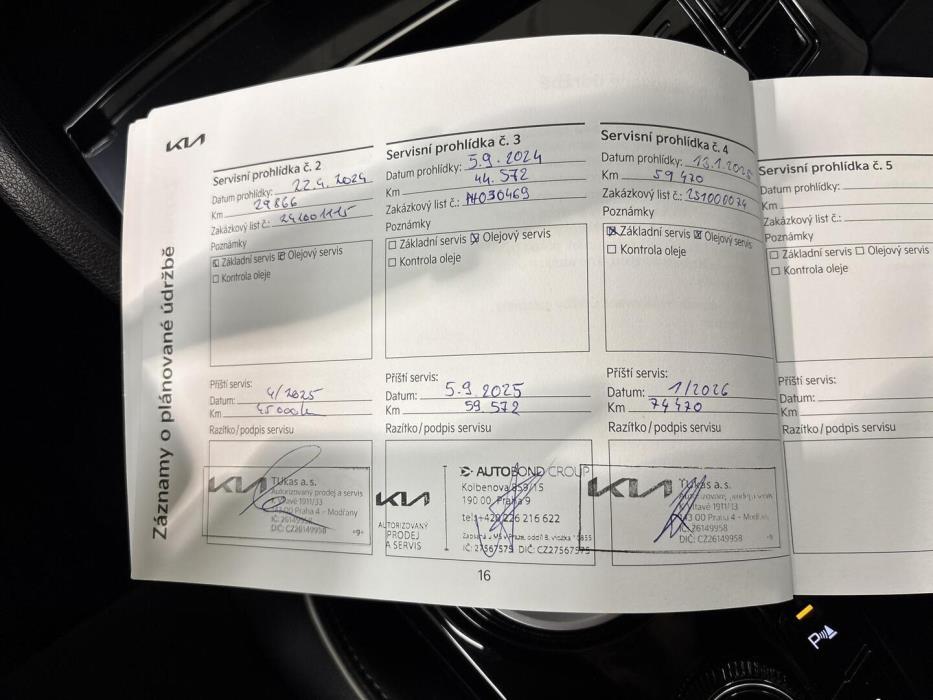 KIA
Záznamy o plánované údržbě
Servisní prohlídka č. 2
Datum prohlídky: 22.4.2024
Km 29866
Zakázkový list č.: 241001115
Poznámky
Základní servis Olejový servis
Kontrola oleje
Příští servis:
Datum: 4/2025
Km 45000
Razítko/podpis servisu
KIA
TUkas a.s.
Autorizovaný prodej a servis
K Vltavě 1911/33
143 00 Praha 4 - Modřany
IČ: 26149958
DIČ: CZ26149958
Servisní prohlídka č. 3
Datum prohlídky: 5.9.2024
Km 44.572
Zakázkový list č.: 030469
Poznámky
Základní servis Olejový servis
Kontrola oleje
Příští servis:
Datum: 5.9.2025
Km 59.572
Razítko/podpis servisu
KIA
AUTORIZOVANÝ
PRODEJ
A SERVIS
AUTOBOND GROUP
Kolbenova 859/15
190 00 Praha 9
tel: +420 226 216 622
IČ: 27567575 DIČ: CZ27567575
Servisní prohlídka č. 4
Datum prohlídky: 13.1.2025
Km 59470
Zakázkový list č.: 251000074
Poznámky
Základní servis Olejový servis
Kontrola oleje
Příští servis:
Datum: 1/2026
Km 74470
Razítko/podpis servisu
KIA
TUkas a.s.
K Vltavě 1911/33
143 00 Praha 4 - Modřany
IČ: 26149958
DIČ: CZ26149958
Servisní prohlídka č. 5
Datum prohlídky:
Km
Zakázkový list č.:
Poznámky
Základní servis Olejový servis
Kontrola oleje
Příští servis:
Datum:
Km
Razítko/podpis servisu
16
P